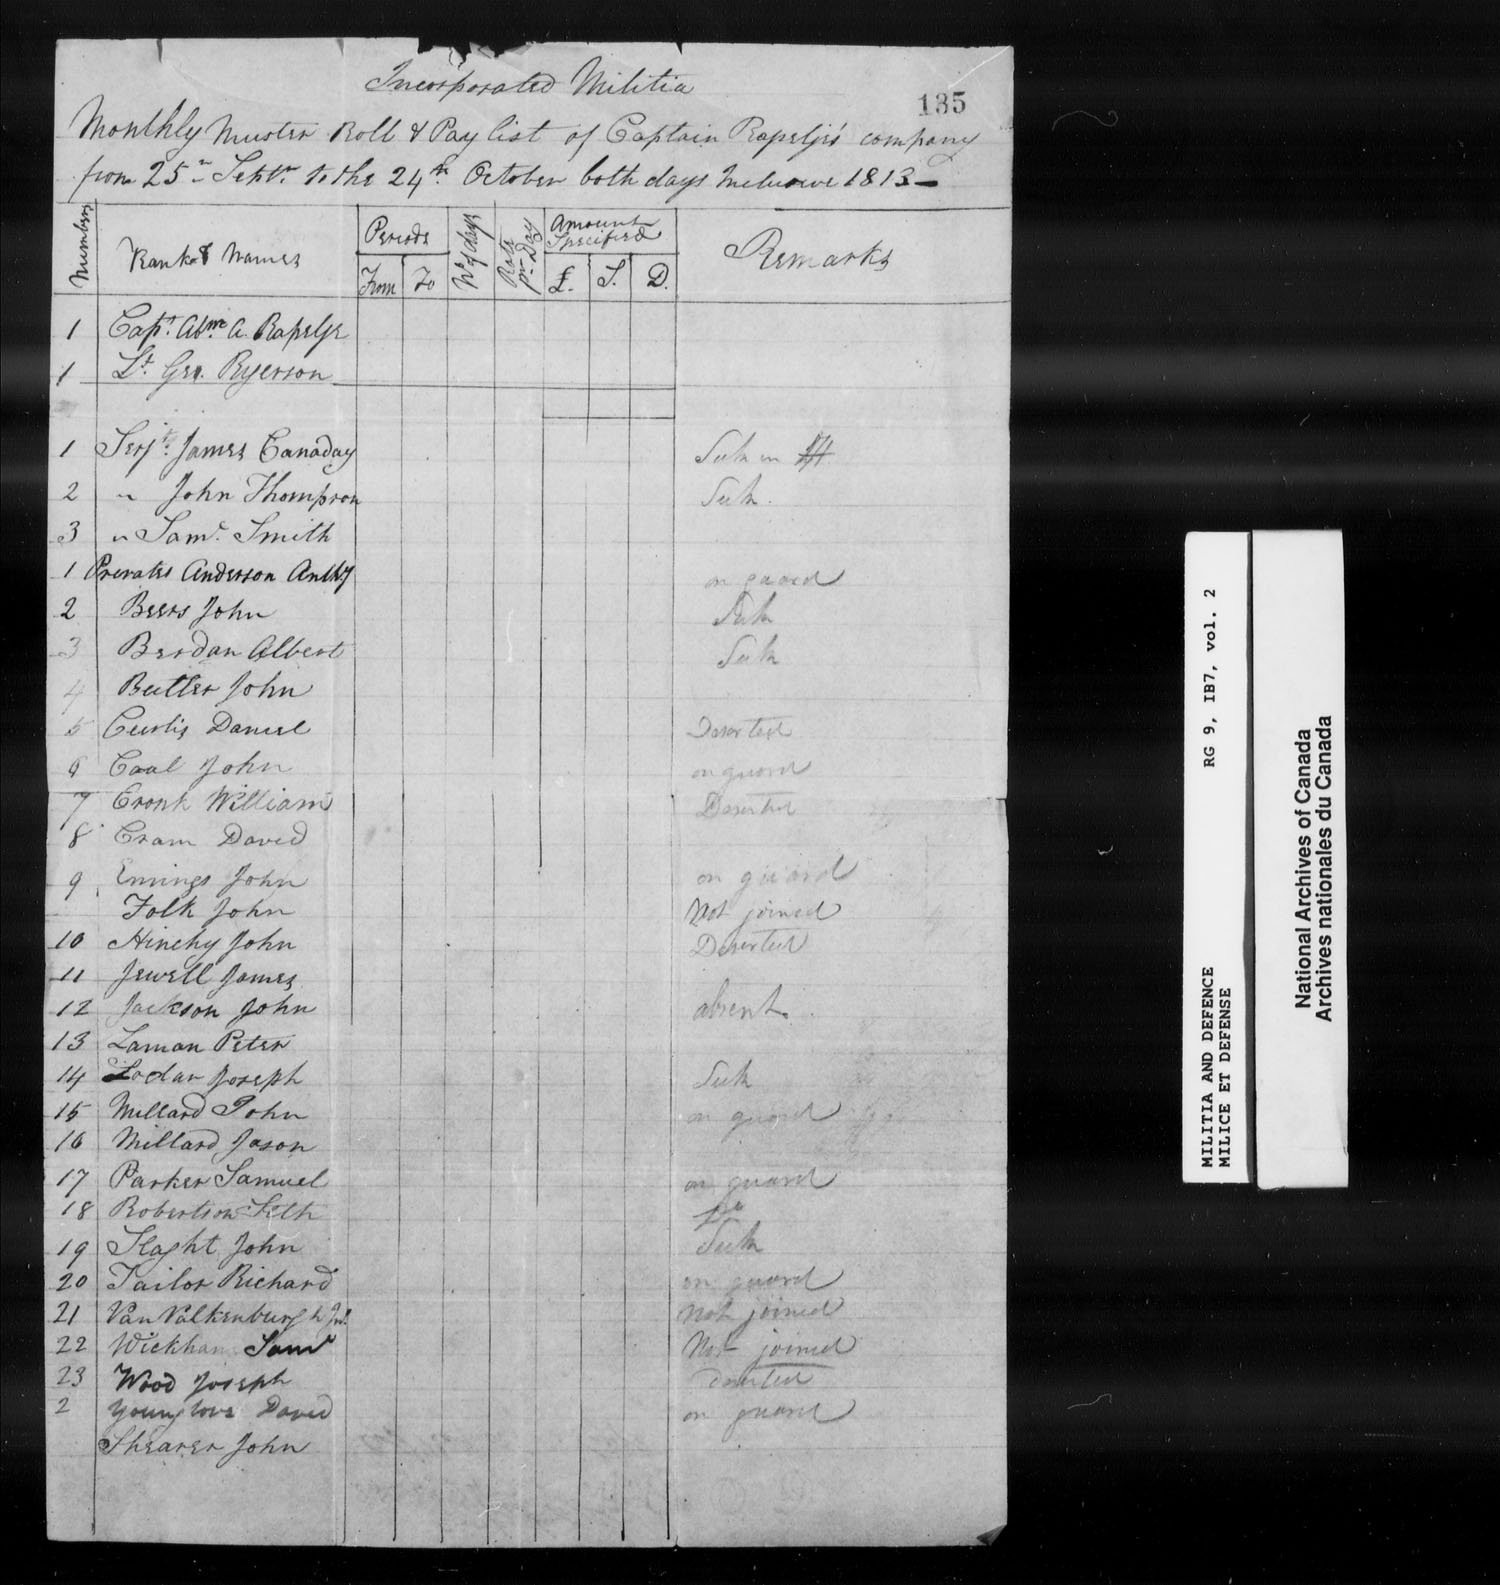 Incorporated Militia
135
Monthly Muster Roll & Pay list of Captain Rapelje's company
from 25th Septr to the 24th October both days Inclusive 1813
Numbers Rank & Names Periods From To No of days Rate pr Day Amount Specified £. S. D. Remarks
1 Capt. Abm. A. Rapelje
1 Lt. Geo. Ryerson
1 Serjt. James Canaday Sick in
2 " John Thompson Sick.
3 " Saml. Smith
1 Privates Anderson Anthy on guard
2 Beers John Sick
3 Berdan Albert Sick
4 Butler John
5 Curtis Daniel Deserted
6 Coal John on guard
7 Cronk William Deserted
8 Cram David
9 Emings John on guard
Folk John Not joined
10 Hinchy John Deserted
11 Jewell James
12 Jackson John absent.
13 Laman Peter
14 Lodar Joseph Sick
15 Millard John on guard
16 Millard Jason
17 Parker Samuel on guard
18 Robertson Seth Do
19 Slaght John Sick
20 Tailor Richard on guard
21 Van Valkenburgh Jno. Not joined
22 Wickham Saml Not joined
23 Wood Joseph Deserted
2 Younglove David on guard
Shearer John
RG 9, IB7, vol. 2
MILITIA AND DEFENCE
MILICE ET DEFENSE
National Archives of Canada
Archives nationales du Canada